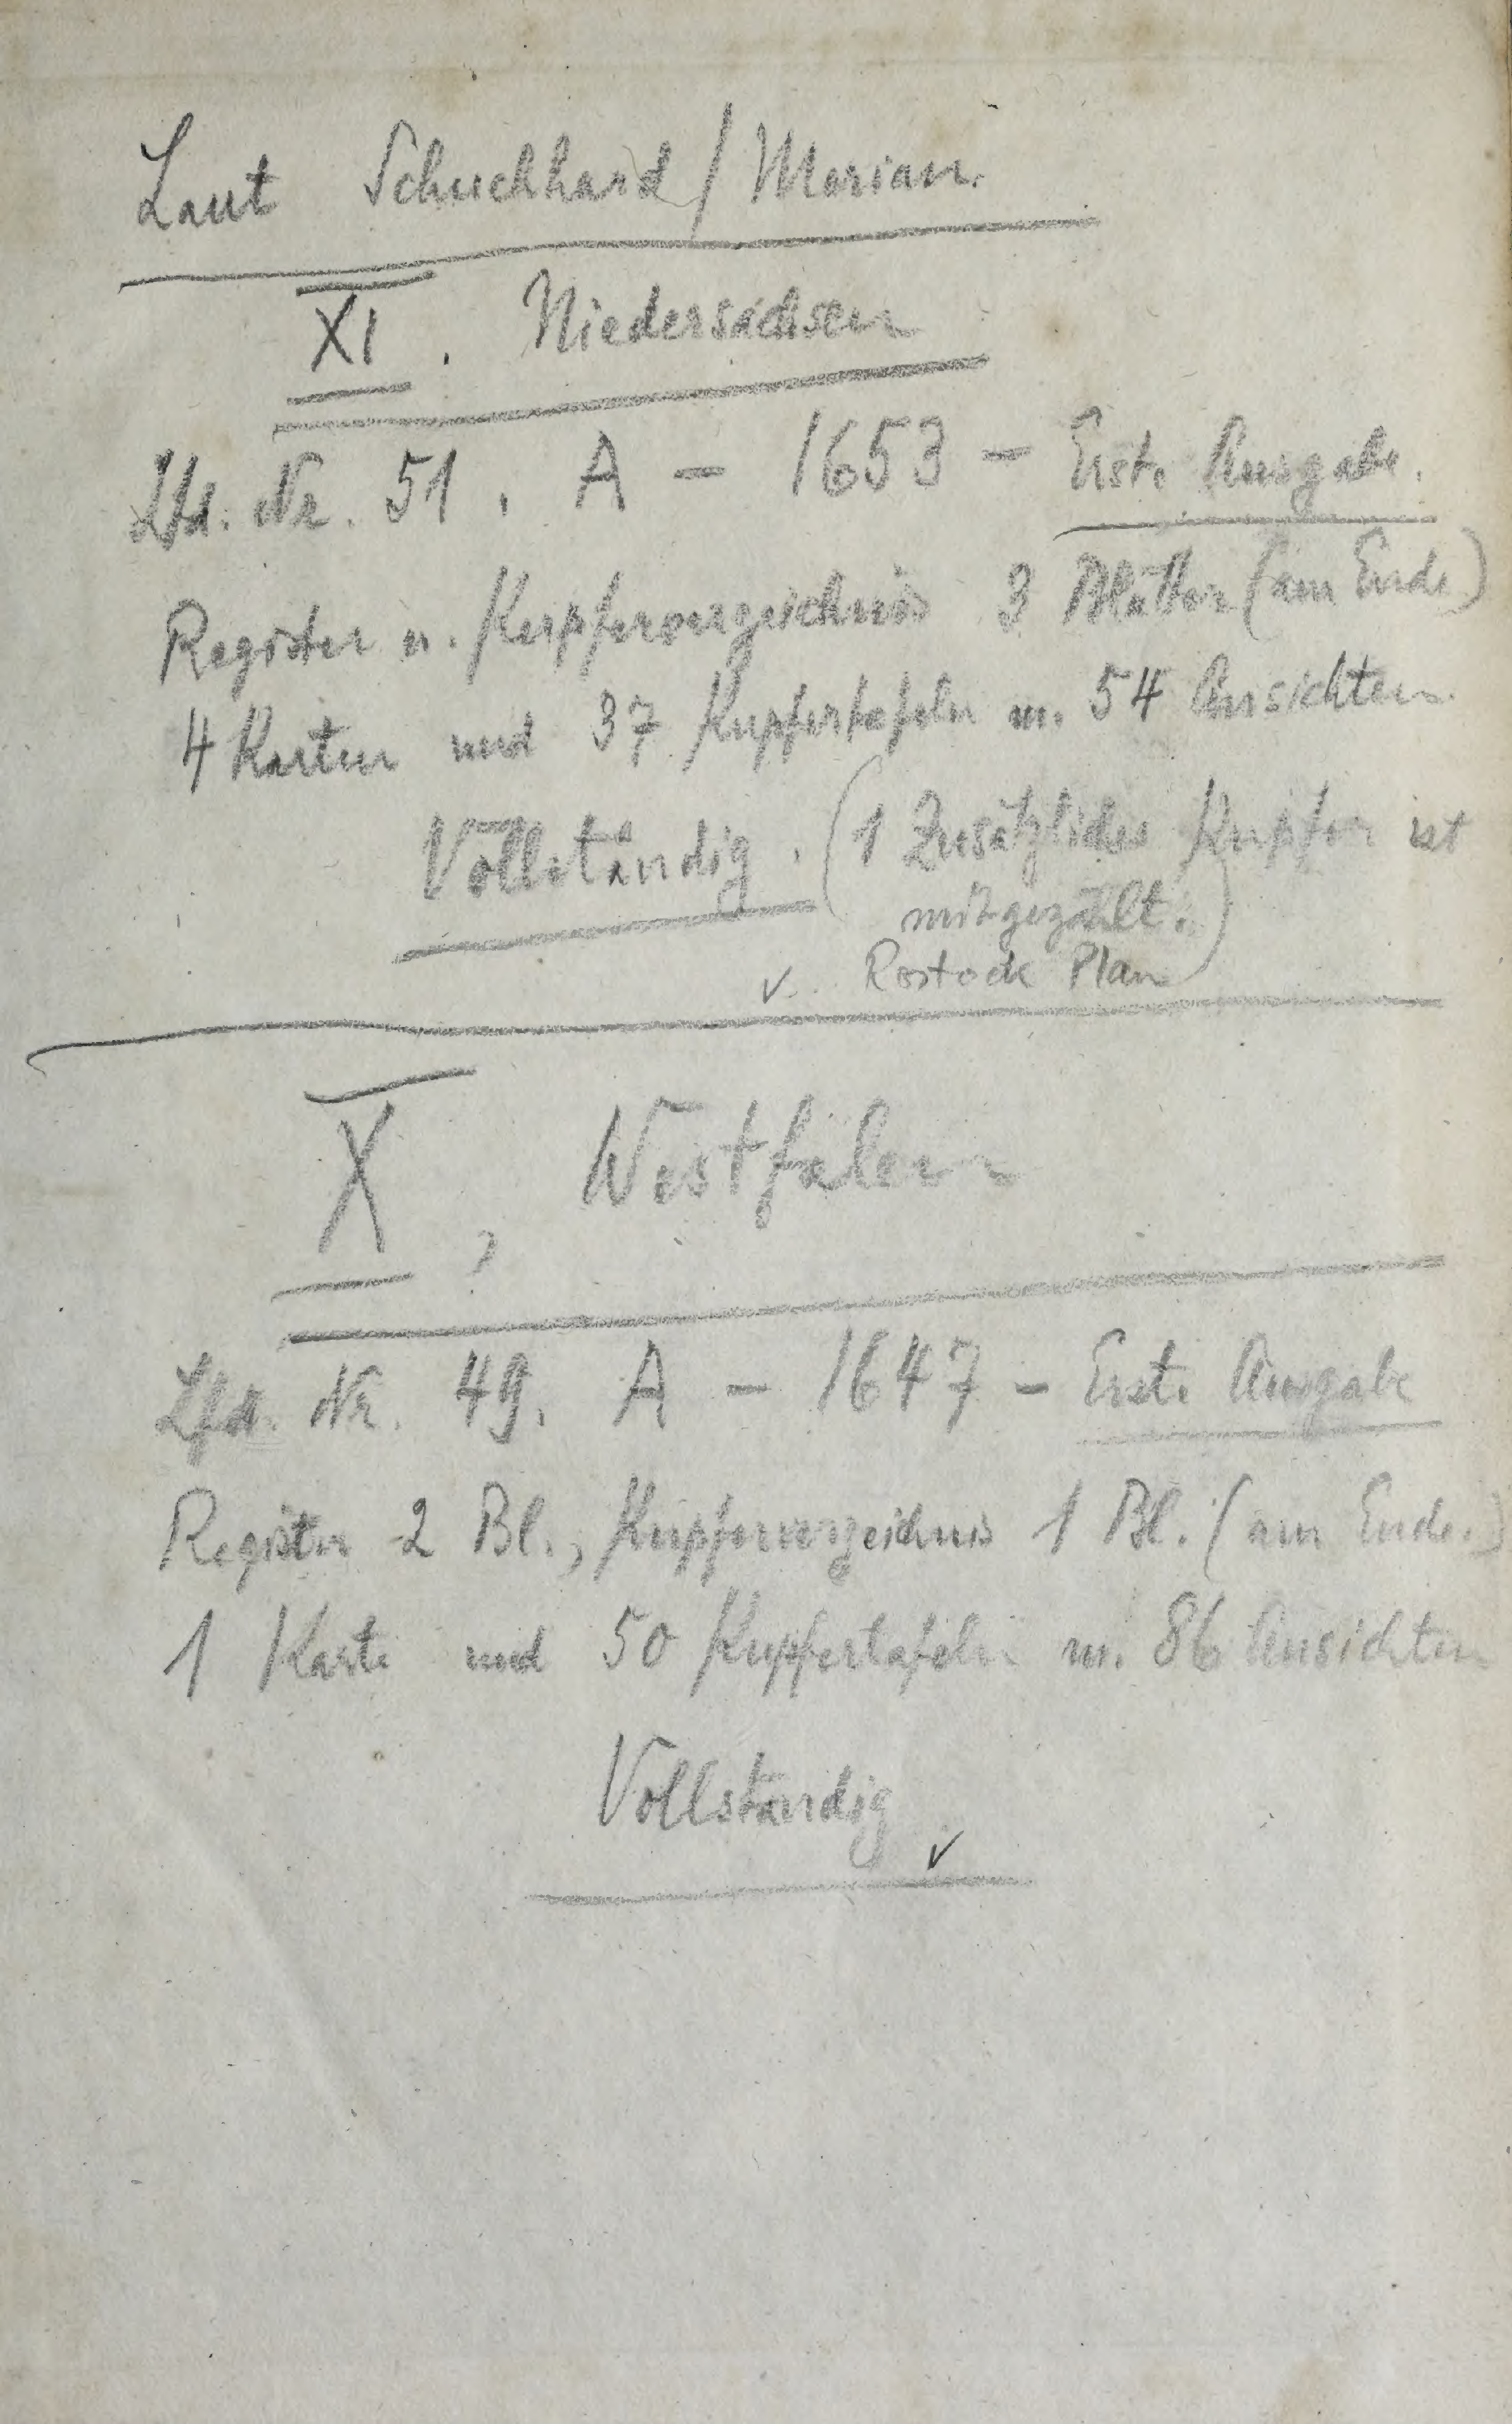 Laut Schuchhard / Merian.
XI. Niedersachsen
Lfd. Nr. 51. A - 1653 - Erste Ausgabe.
Register u. Kupferverzeichnis 3 Blätter (am Ende)
4 Karten und 37 Kupfertafeln m. 54 Ansichten.
Vollständig. (1 Zusätzliches Kupfer ist
mitgezählt.)
✓. Rostock Plan
X, Westfalen
Lfd. Nr. 49. A - 1647 - Erste Ausgabe
Register 2 Bl., Kupferverzeichnis 1 Bl. (am Ende.)
1 Karte und 50 Kupfertafeln m. 86 Ansichten
Vollständig
✓